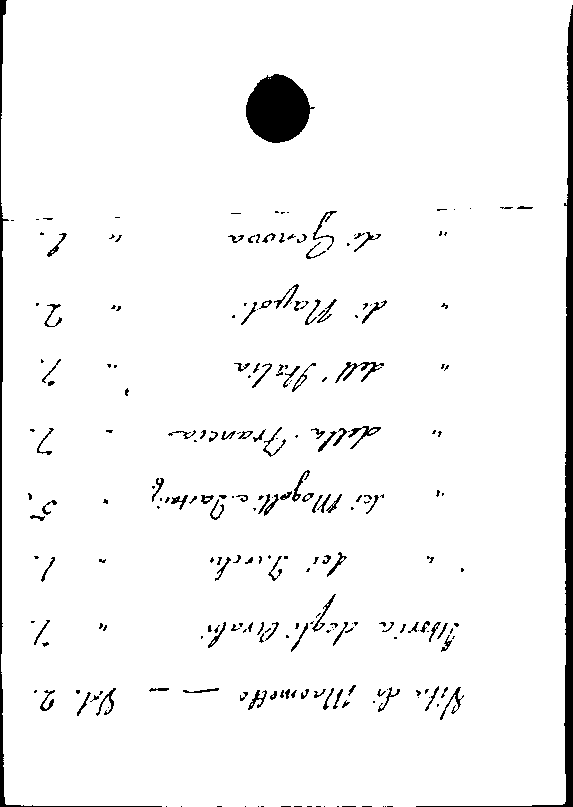 Vita di Maometto — — Vol. 2.
Storia degli Arabi " 7.
" dei Turchi " 1.
" dei Mogolli e Tartari " 5.
" della Francia " 7.
" dell'Italia " 7.
" di Napoli " 2.
" di Genova " 1.